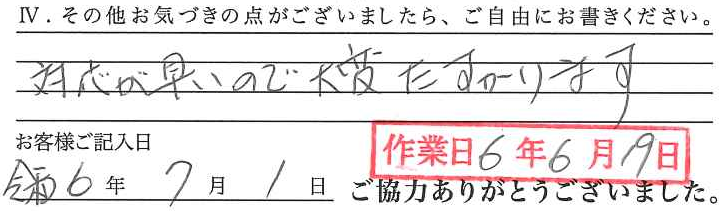 Ⅳ．その他お気づきの点がございましたら、ご自由にお書きください。
対応が早いので大変たすかります
お客様ご記入日
作業日 6年 6月 19日
令和 6 年 7 月 1 日
ご協力ありがとうございました。